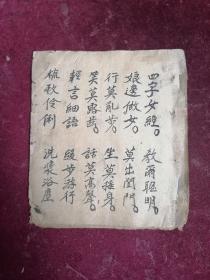 四字女經。 教爾聰明。
娘邊做女。 莫出閨門。
行莫亂步。 坐莫搖身。
笑莫露齒。 話莫高聲。
輕言細語 緩步游行
梳 伶俐 洗漿浴塵